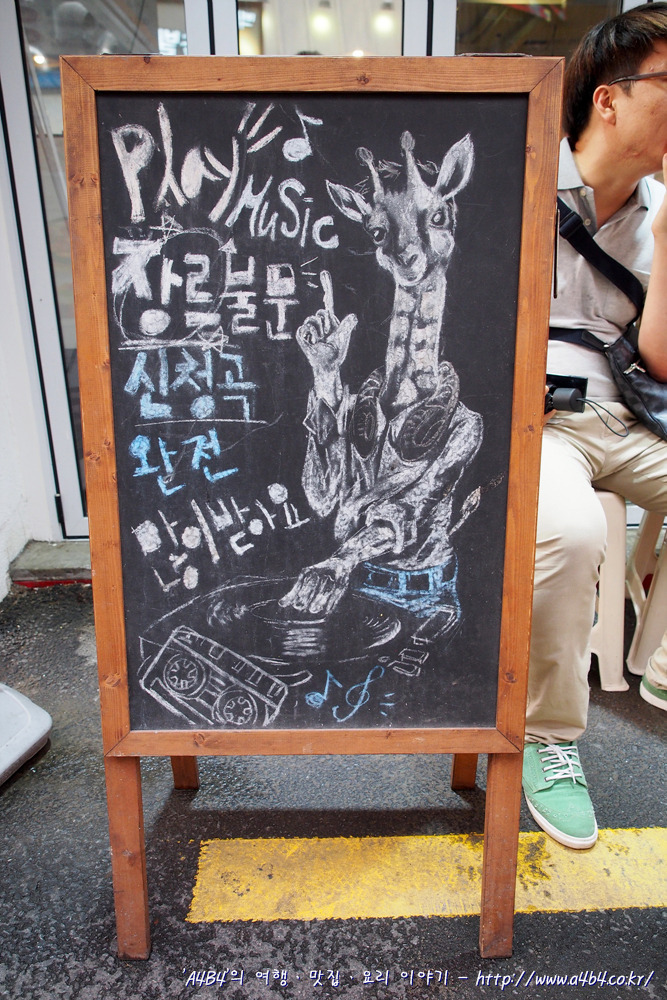 Play
Music
장르불문
신청곡
완전
많이받아요
'A4B4'의 여행 · 맛집 · 요리 이야기 - http://www.a4b4.co.kr/